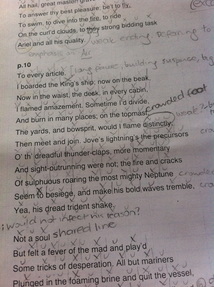 All hail, great master! grave
To answer thy best pleasure; be't to fly,
To swim, to dive into the fire, to ride
On the curl'd clouds, to thy strong bidding task
Ariel and all his quality.
p.10
To every article.
I boarded the King's ship; now on the beak,
Now in the waist, the deck, in every cabin,
I flamed amazement. Sometime I'd divide,
And burn in many places; on the topmast,
crowded foot
The yards, and bowsprit, would I flame distinctly,
Then meet and join. Jove's lightning's the precursors
O' th' dreadful thunder-claps, more momentary
And sight-outrunning were not; the fire and cracks
Of sulphurous roaring the most mighty Neptune
Seem to besiege, and make his bold waves tremble,
Yea, his dread trident shake.
would not infect his reason?
Not a soul shared line
But felt a fever of the mad and play'd
Some tricks of desperation. All but mariners
Plunged in the foaming brine and quit the vessel,